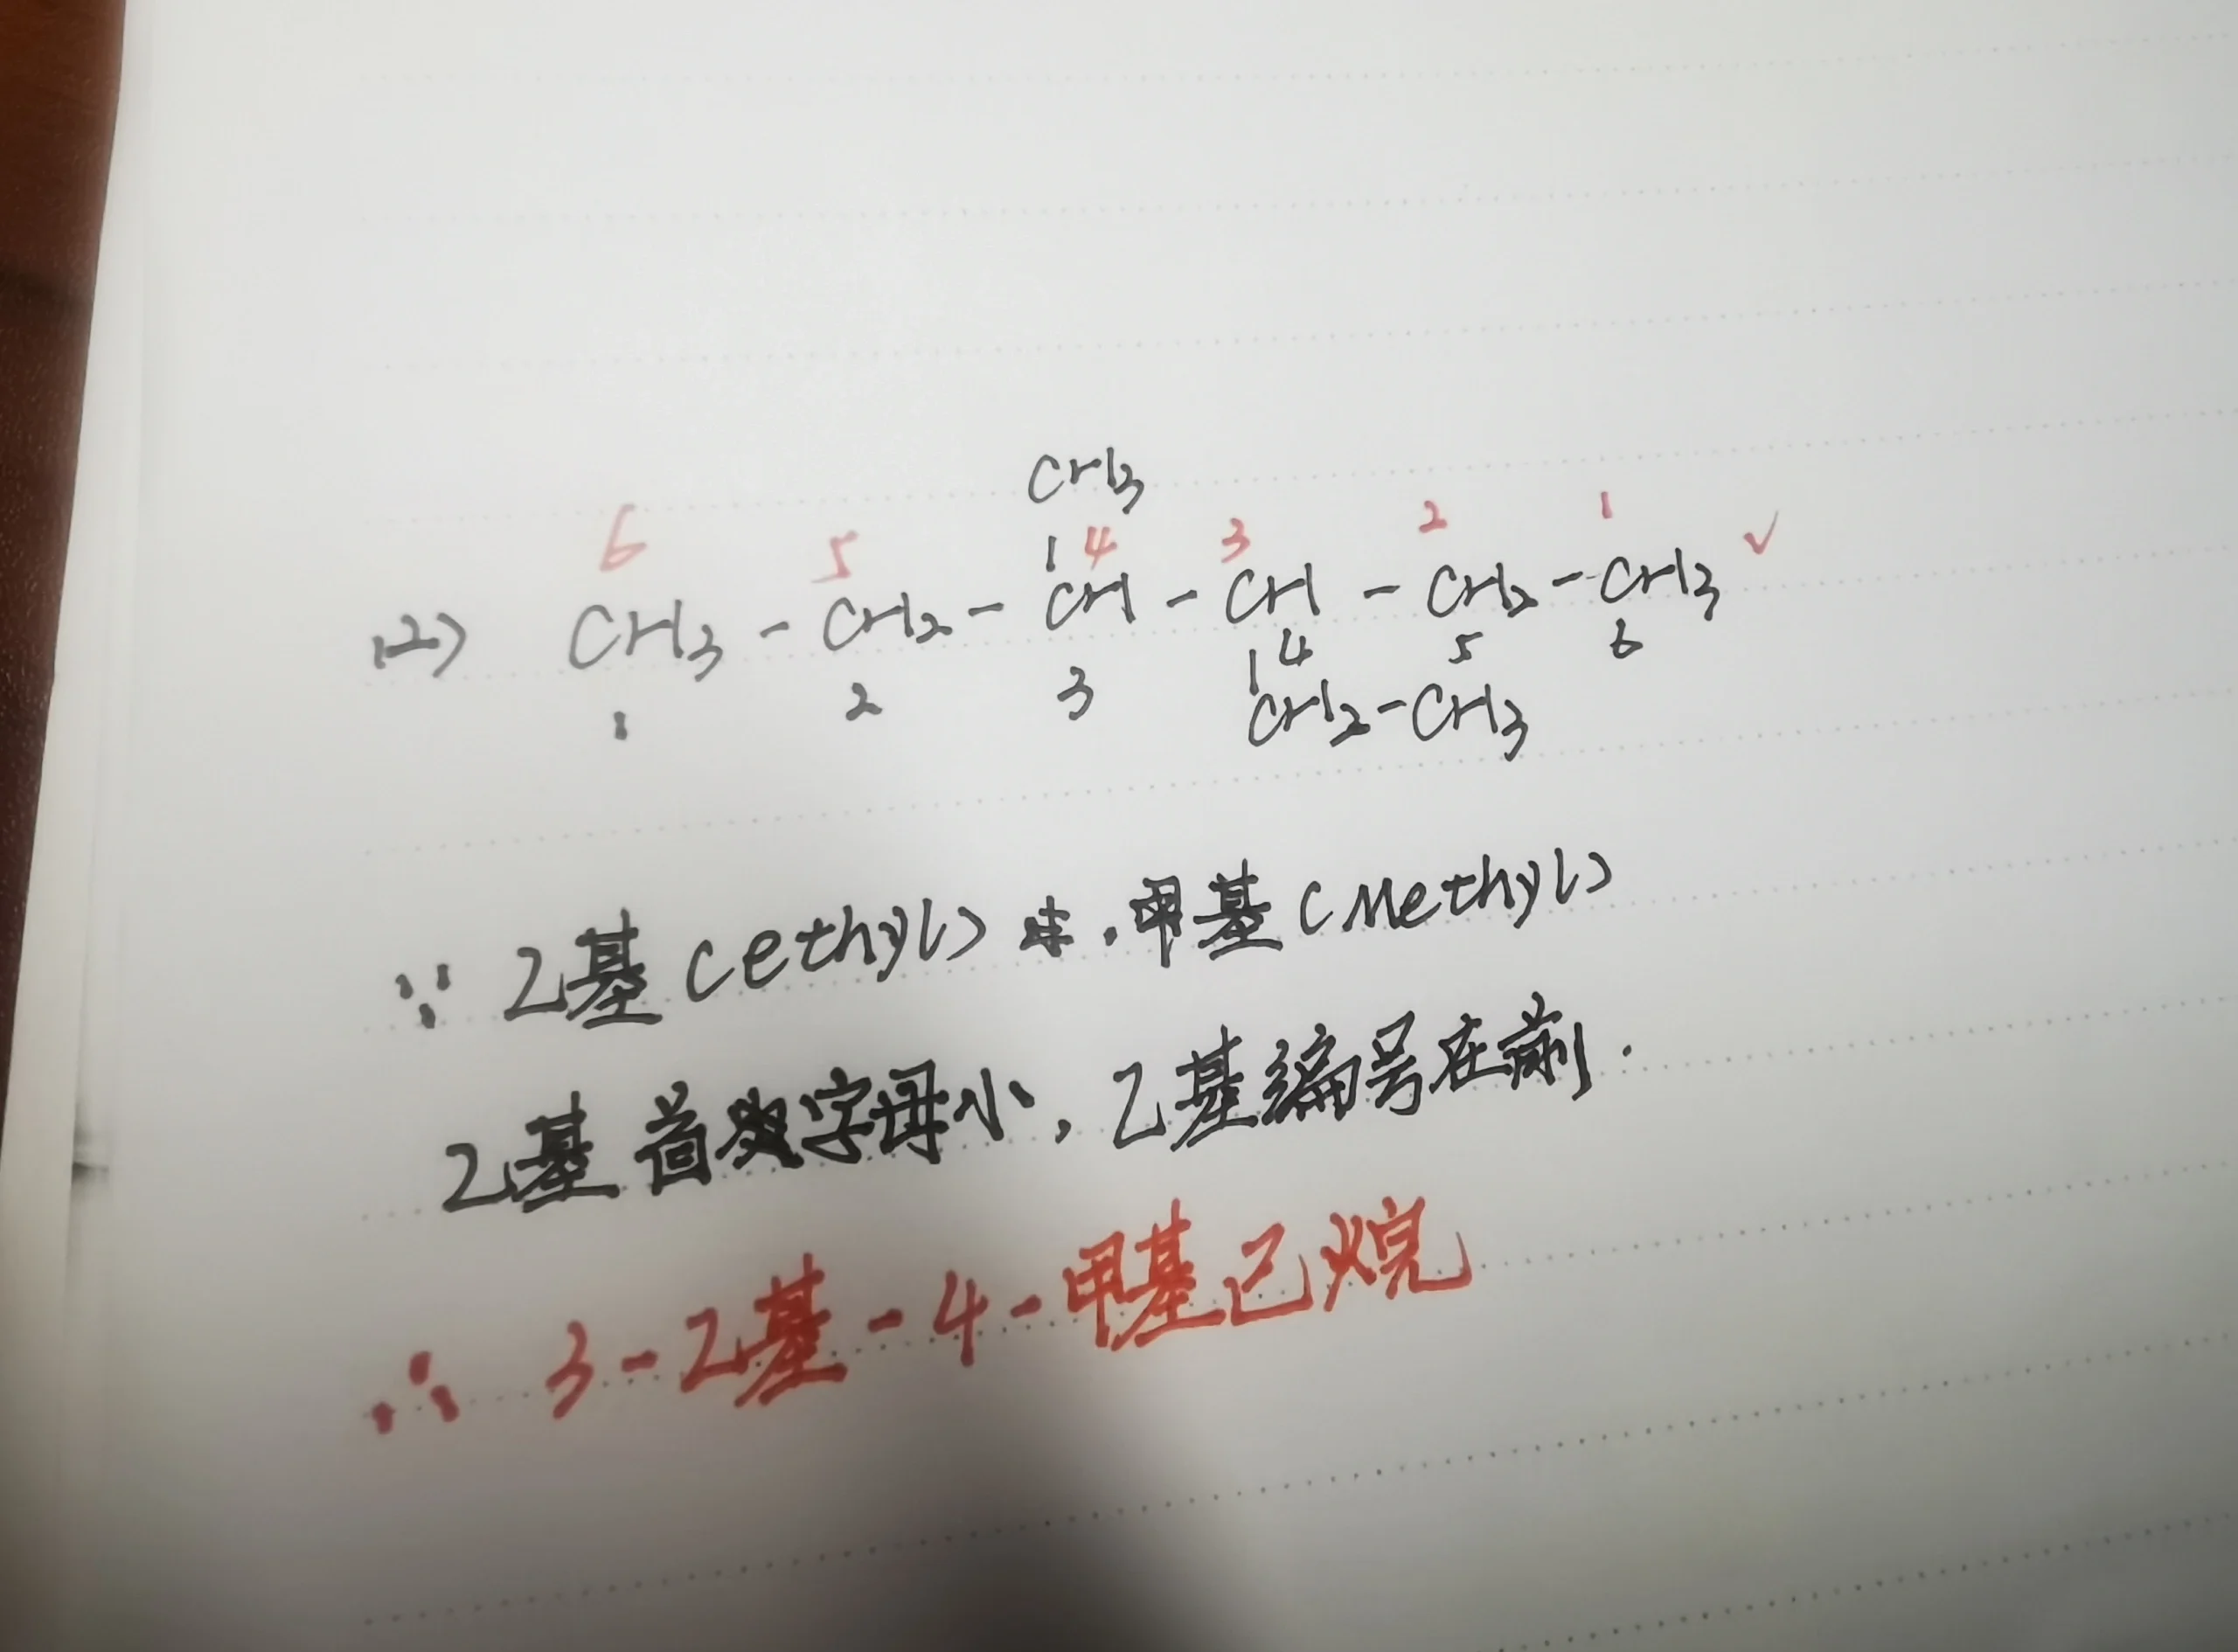 CH3
6 5 4 3 2 1
(2) CH3-CH2-CH-CH-CH2-CH3 ✓
1 2 3 4 5 6
CH2-CH3
∵ 乙基(ethyl) , 甲基(Methyl)
乙基首字母小，乙基编号在前.
∴ 3-乙基-4-甲基己烷